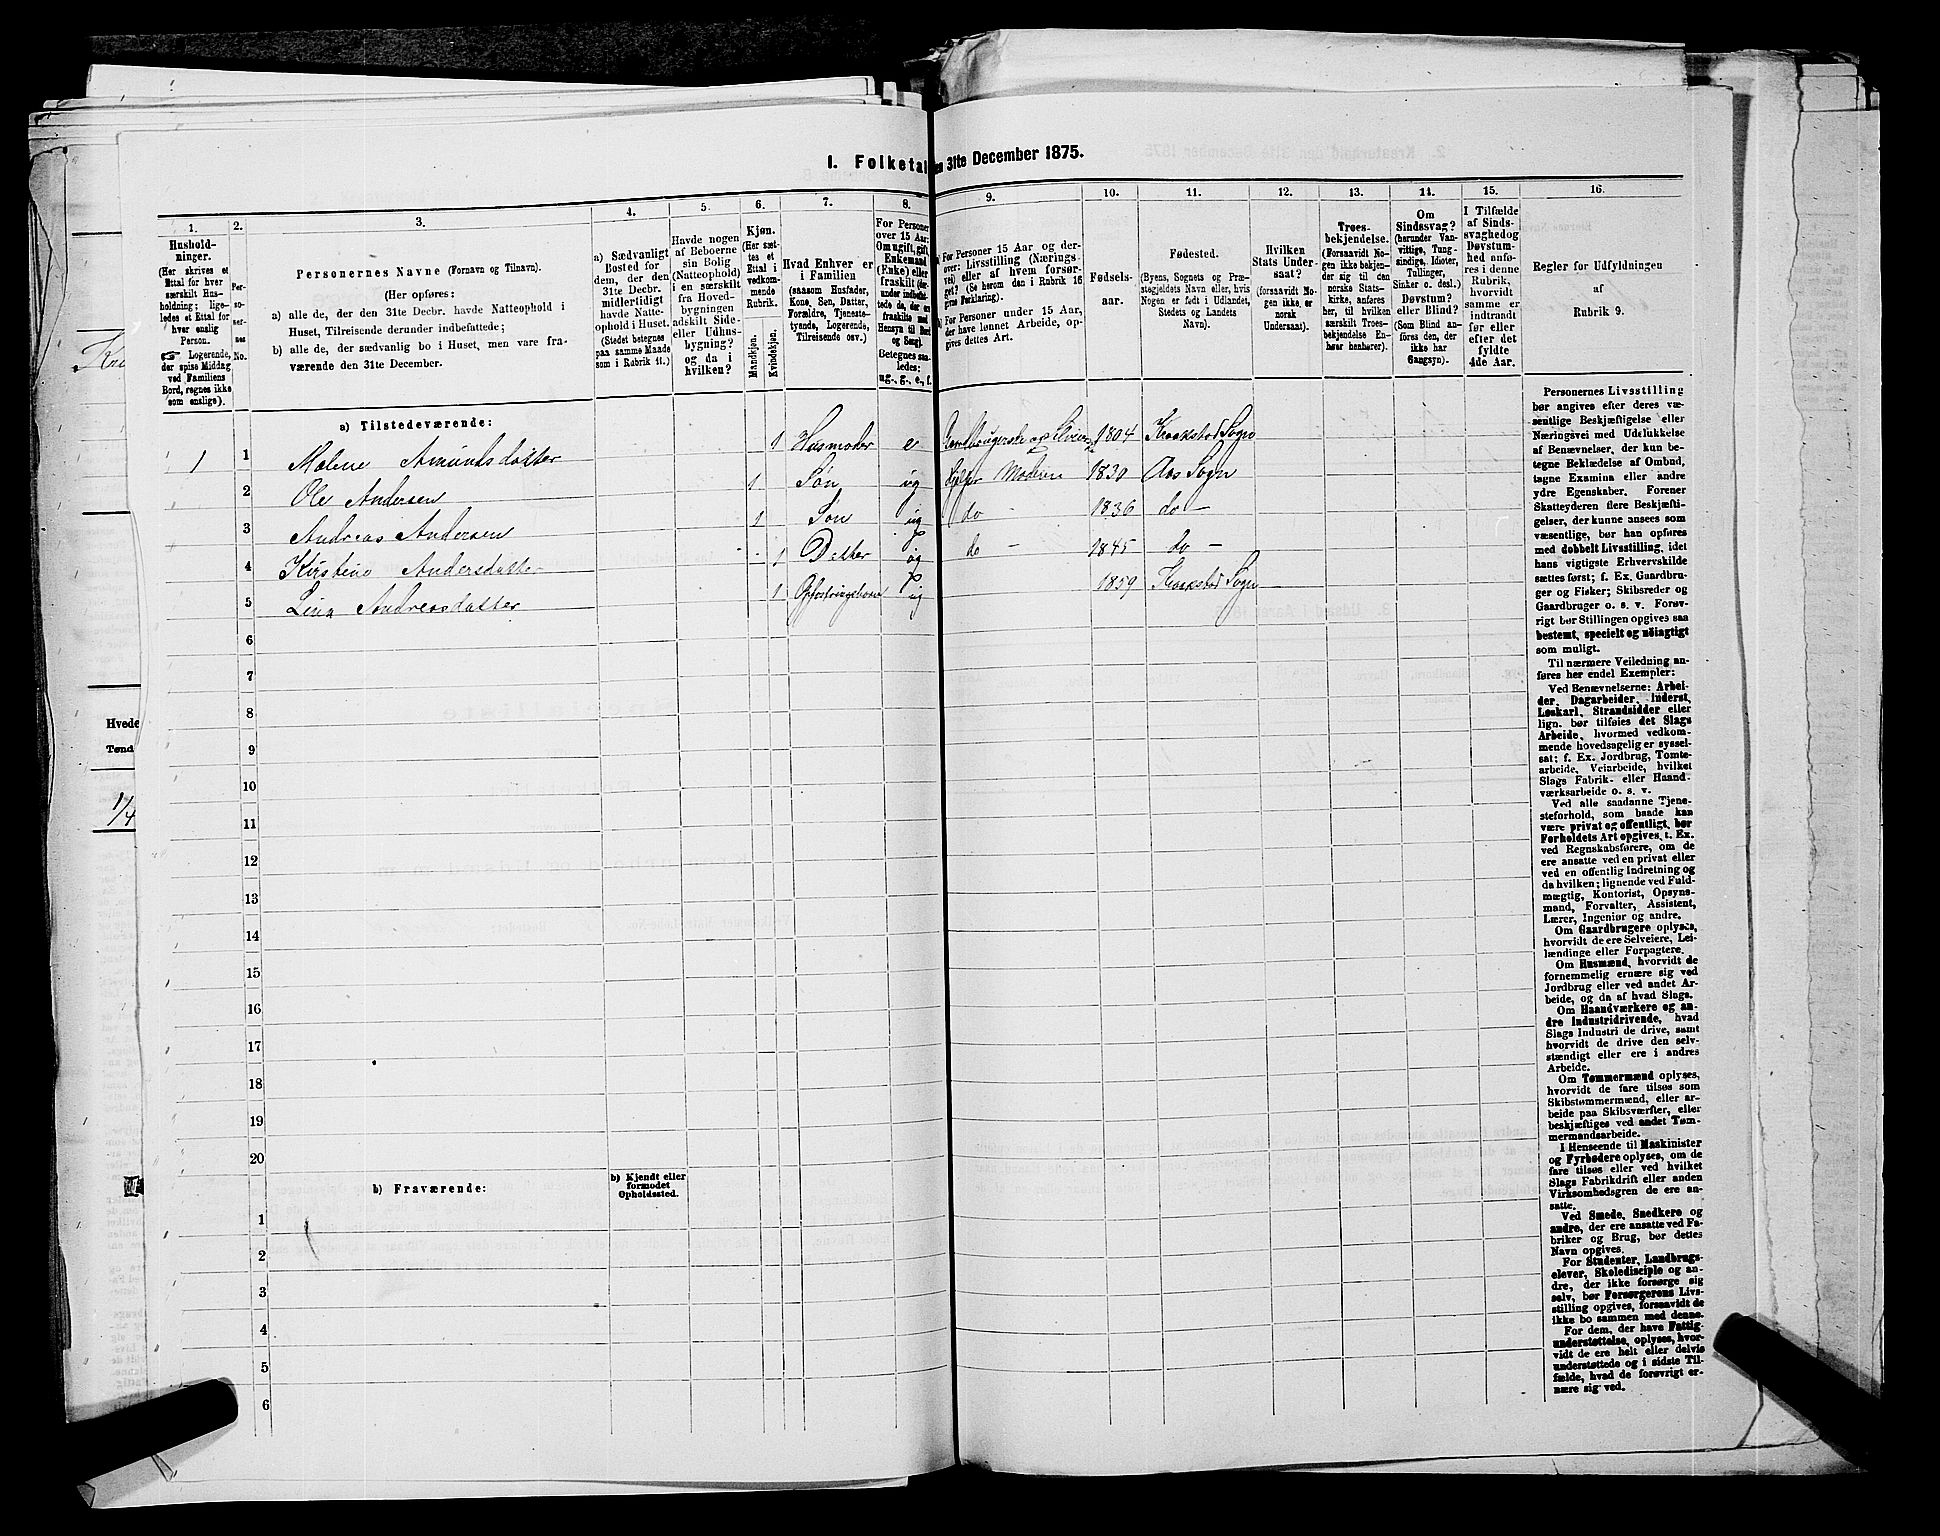 1. Folketal
en 31te December 1875.
1.
2.
3.
4.
5.
6.
7.
8.
9.
10.
11.
12.
13.
14.
15.
16.
Hushold-
ninger.
(Her skrives et
Ettal for hver
særskilt Hus-
holdning; lige-
ledes et Ettal for
hver enslig
Person.
☞ Logerende,
der spise Middag
ved Familiens
Bord, regnes ikke
som enslige).
Per-
so-
ner-
nes
No.
Personernes Navne (Fornavn og Tilnavn).
(Her opføres:
a) alle de, der den 31te Decbr. havde Natteophold i
Huset, Tilreisende derunder indbefattede;
b) alle de, der sædvanlig bo i Huset, men vare fra-
værende den 31te December.
a) Sædvanligt
Bosted for
dem, der den
31te Decbr.
midlertidigt
havde Natte-
ophold i Huset.
(Stedet betegnes
paa samme Maade
som i Rubrik 11.)
Havde nogen
af Beboerne
sin Bolig
(Natteophold)
i en særskilt
fra Hoved-
bygningen
adskilt Side-
eller Udhus-
bygning?
og da i
hvilken?
Kjøn.
(Her sæt-
tes et
Ettal i
vedkom-
mende
Rubrik.
Mandkjøn.
Kvindekjøn.
Hvad Enhver er
i Familien
(saasom Husfader,
Kone, Søn, Datter,
Forældre, Tjeneste-
tyende, Logerende,
Tilreisende osv.)
For Personer
over 15 Aar:
Om ugift, gift,
Enkemand
(Enke) eller
fraskilt
Betegnes saa-
ledes:
ug., g., e., f.
For Personer 15 Aar og der-
over: Livsstilling (Nærings-
vei) eller af hvem forsør-
get? (Se herom den i Rubrik 16
givne Forklaring).
For Personer under 15 Aar,
der have lønnet Arbeide, op-
gives dettes Art.
Fødsels-
aar.
Fødested.
(Byens, Sognets og Præ-
stegjeldets Navn eller, hvis
Nogen er født i Udlandet,
Stedets og Landets
Navn).
Hvilken
Stats Under-
saat?
(forsaavidt No-
gen ikke er
norsk
Undersaat).
Troes-
bekjendelse.
(Forsaavidt No-
gen ikke bekjen-
der sig til den
norske Stats-
kirke, anføres
her, til hvilken
særskilt Troes-
bekjendelse En-
hver henhører).
Om
Sindssvag?
(herunder Van-
vittige, Tung-
sindige, Idioter,
Tullinger,
Sinker o. desl.)
Døvstum?
eller Blind?
(Som Blind anfø-
res den, der
ikke har
Gangsyn).
I Tilfælde
af Sinds-
svaghed og
Døvstum-
hed anfø-
res i denne
Rubrik,
hvorvidt
samme er
indtraadt
før eller
efter det
fyldte
4de Aar.
Regler for Udfyldningen
af
Rubrik 9.
a) Tilstedeværende:
1 1 Malene Amundsdatter 1 Husmoder e Gaardbrugerske og Selveier 1804 Kraakstad Sogn
2 Ole Andersen 1 Søn ug hjelper Moderen 1830 Aas Sogn
3 Andreas Andersen 1 Søn ug do – 1836 do –
4 Kirstine Andersdatter 1 Datter ug do – 1845 do –
5 Lina Andreasdatter 1 Opfostringsbarn ug 1859 Kraakstad Sogn
6
7
8
9
10
11
12
13
14
15
16
17
18
19
20
b) Fraværende:
b) Kjendt eller
formodet
Opholdssted.
1
2
3
4
5
6
Personernes Livsstilling
bør angives efter deres væ-
sentlige Beskjæftigelse eller
Næringsvei med Udelukkelse
af Benævnelser, der kun be-
tegne Beklædelse af Ombud,
tagne Examina eller andre
ydre Egenskaber. Forener
Skatteyderen flere Beskjæfti-
gelser, der kunne ansees som
væsentlige, bør han opføres
med dobbelt Livsstilling, idet
hans vigtigste Erhvervskilde
sættes først; f. Ex. Gaardbru-
ger og Fisker; Skibsreder og
Gaardbruger o. s. v. Forøv-
rigt bør Stillingen opgives saa
bestemt, specielt og nöiagtigt
som muligt.
Til nærmere Veiledning an-
føres her endel Exempler:
Ved Benævnelserne: Arbei-
der, Dagarbeider, Inderst,
Løskarl, Strandsidder eller
lign. bør tilføies det Slags
Arbeide, hvormed vedkom-
mende hovedsagelig er syssel-
sat; f. Ex. Jordbrug, Tomte-
arbeide, Veiarbeide, hvilket
Slags Fabrik- eller Haand-
værksarbeide o. s. v.
Ved alle saadanne Tjene-
steforhold, som baade kan
være privat og offentligt, bør
Forholdets Art opgives, t. Ex.
ved Regnskabsførere, om de
ere ansatte ved en privat eller
ved en offentlig Indretning og
da hvilken; lignende ved Fuld-
mægtig, Kontorist, Opsyns-
mand, Forvalter, Assistent,
Lærer, Ingeniør og andre.
Om Gaardbrugere oplyses,
hvorvidt de ere Selveiere, Lei-
lændinge eller Forpagtere.
Om Husmænd, hvorvidt de
fornemmelig ernære sig ved
Jordbrug eller ved andet Ar-
beide, og da af hvad Slags.
Om Haandværkere og an-
dre Industridrivende, hvad
Slags Industri de drive, samt
hvorvidt de drive den selv-
stændigt eller ere i andres
Arbeide.
Om Tømmermænd oplyses,
hvorvidt de fare tilsøs som
Skibstømmermænd, eller ar-
beide paa Skibsværfter, eller
beskjæftiges ved andet Tøm-
mermandsarbeide.
I Henseende til Maskinister
og Fyrbødere oplyses, om de
fare tilsøs eller ved hvilket
Slags Fabrikdrift eller anden
Virksomhedsgren de ere an-
satte.
Ved Smede, Snedkere og
andre, der ere ansatte ved Fa-
briker og Brug, bør dettes
Navn opgives.
For Studenter, Landbrugs-
elever, Skoledisciple og an-
dre, der ikke forsørge sig
selv, bør Forsørgerens Livs-
stilling opgives, forsaavidt de
ikke bo sammen med denne.
For dem, der have Fattig-
understøttelse, oplyses, hvor-
vidt de ere helt eller delvis
understøttede og i sidste Til-
fælde, hvad de forøvrigt er-
nære sig ved.
Hvede
Tønd
1/4